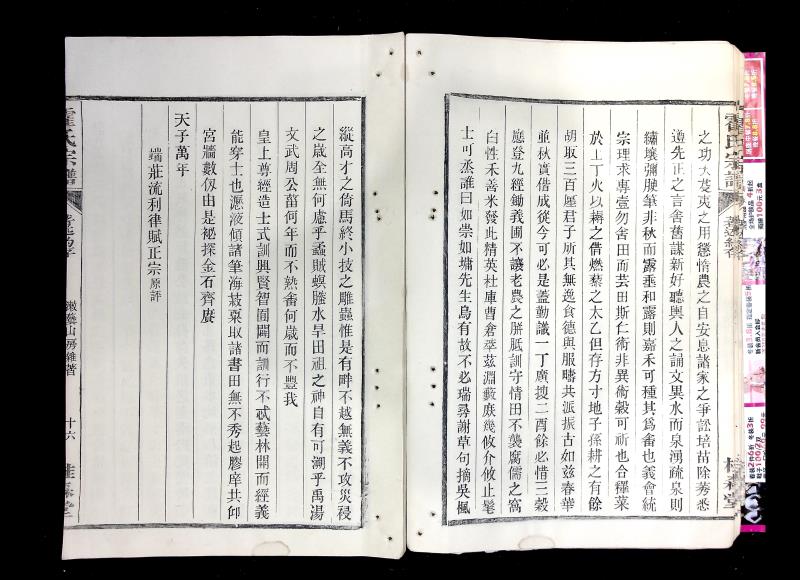 之功大芟夷之用懲惰農之自安息諸家之爭訟培苗除莠悉
遵先正之言舍舊謀新好聽輿人之誦文異水而泉湧疏泉則
繡壤彌腴筆非秋而露垂和露則嘉禾可種其為畬也義會統
宗理求專壹勿舍田而芸田斯仁術非異術穀可祈也合釋菜
於上丁火以耨之借燃藜之太乙但存方寸地子孫耕之有餘
胡取三百厘君子所其無逸食德與服疇共派振古如茲春華
並秋實借成從今可必是蓋勤識一丁廣搜二酉餘必惜三穀
應登九經鋤義圃不讓老農之胼胝訓守情田不襲腐儒之窩
臼性禾善米發此精英杜庫曹倉
士可烝誰曰如崇如墉先生烏有故不必瑞尋謝草句摘吳楓
縱高才之倚馬終小技之雕蟲惟是有畔不越無義不攻災祲
之歲全無何慮乎蟊賊螟螣水旱田祖之神自有可溯乎禹湯
文武周公菑何年而不熟畬何歲而不豐我
皇上尊經造士式訓興賢智囿闢而訓行不忒藝林開而經義
能穿士也瀝液傾諸筆海菽粟取諸書田無不秀起膠庠共仰
宮牆數仞由是祕探金石齊賡
天子萬年
端莊流利律賦正宗 原評
霍氏宗譜
山房雜著
十六
桂森堂
霍氏宗譜